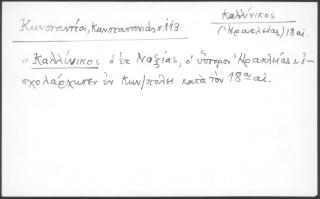 Καλλίνικος
(Ἡρακλείας) 18 αἰ.
Κωνσταντία, Κωνσταντινιάς σ. 113
"Καλλίνικος ὁ ἐκ Ναξίας, ὁ ὕστερον Ἡρακλείας ἐ-
σχολάρχησεν ἐν Κων/πόλει κατὰ τὸν 18ον αἰ.